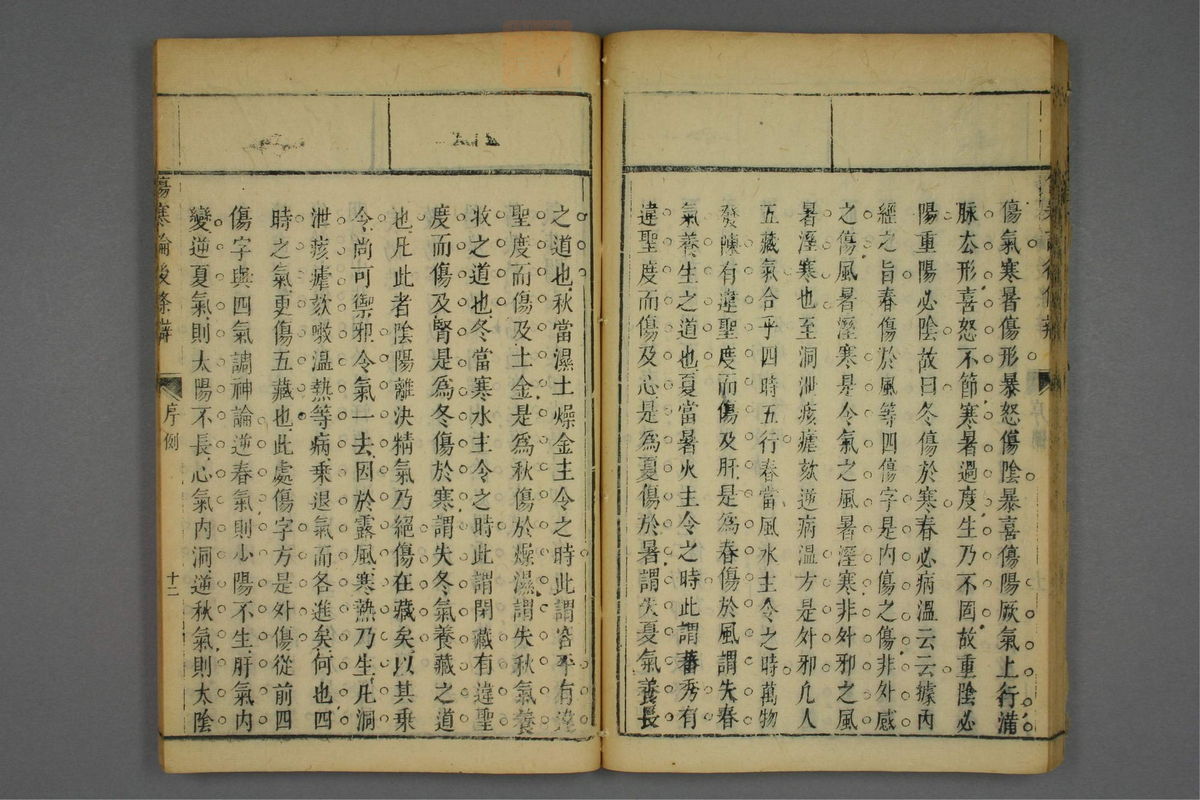 傷氣寒暑傷形暴怒傷陰暴喜傷陽厥氣上行滿
脉去形喜怒不節寒暑過度生乃不固故重陰必
陽重陽必陰故曰冬傷於寒春必病溫云云據內
經之旨春傷於風等四傷字是內傷之傷非外感
之傷風暑溼寒是令氣之風暑溼寒非外邪之風
暑溼寒也至洞泄痎瘧欬逆病溫方是外邪凡人
五藏氣合乎四時五行春當風水主令之時萬物
發陳有違聖度而傷及肝是為春傷於風謂失春
氣養生之道也夏當暑火主令之時此謂蕃秀有
違聖度而傷及心是為夏傷於暑謂失夏氣養長
之道也秋當濕土燥金主令之時此謂容平有違
聖度而傷及土金是為秋傷於燥濕謂失秋氣養
收之道也冬當寒水主令之時此謂閉藏有違聖
度而傷及腎是為冬傷於寒謂失冬氣養藏之道
也凡此者陰陽離決精氣乃絕傷在藏矣以其乘
令尚可禦邪令氣一去因於露風寒熱乃生凡洞
泄痎瘧欬嗽溫熱等病乘退氣而各進矣何也四
時之氣更傷五藏也此處傷字方是外傷從前四
傷字與四氣調神論逆春氣則少陽不生肝氣內
變逆夏氣則太陽不長心氣內洞逆秋氣則太陰
傷寒論後條辨
序例
十二